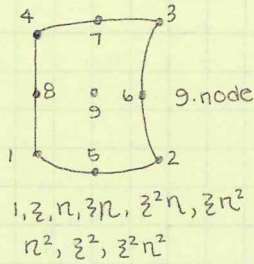 4 3
7
8 9 6 9.node
1 5 2
1, ξ, η, ξη, ξ²η, ξη²
η², ξ², ξ²η²